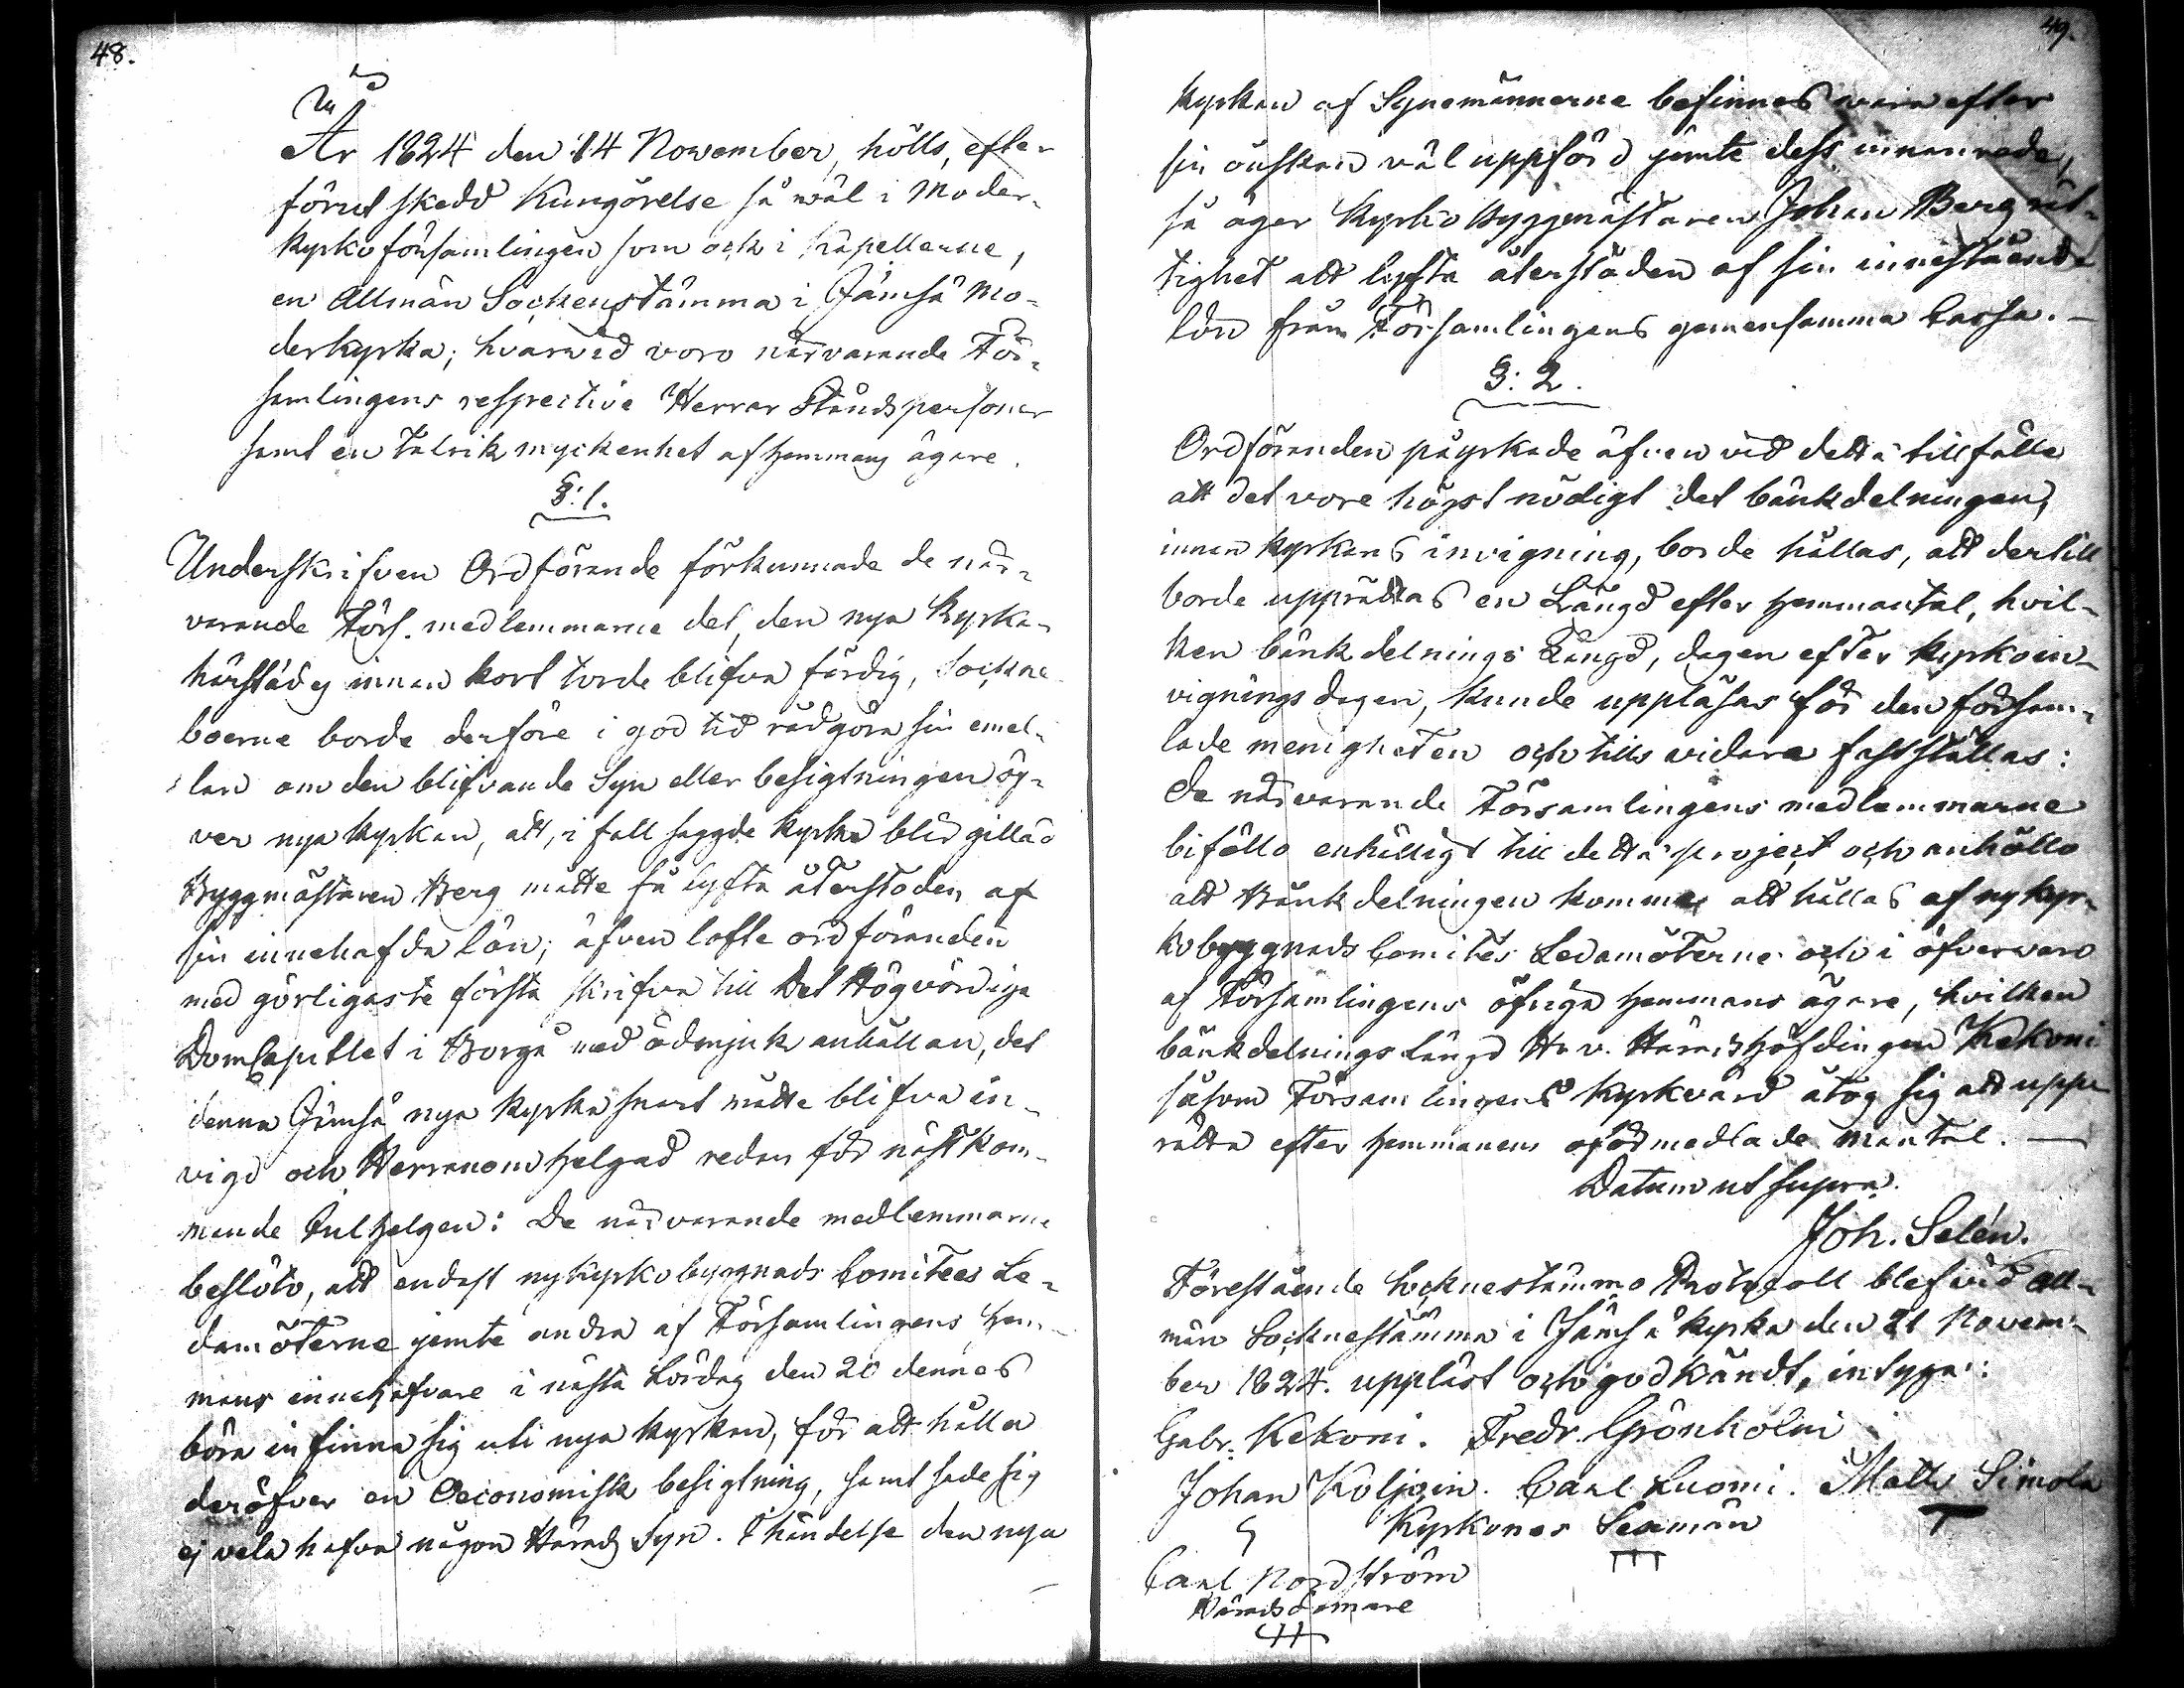 48.
År 1824 den 14 November, hölls, efter
förut skedd Kungörelse så wäl i Moder-
kyrko församlingen som och i Kapellerne,
en Allmän Sockenstämma i Jämsä Mo-
derkyrka; hvarwid voro närvarande För-
samlingens respective Herrar Ståndspersoner
samt en talrik myckenhet af hemmans ägare.
§: 1.
Underskrifven Ordförande förkunnade de när-
varande Förs. medlemmarne det, den nya Kyrka-
härstädes innan kort torde blifva färdig, Sockne
boerne borde derföre i god tid rådgöra sin emel-
lan om den blifvande Syn eller besigtningen öf-
ver nya kyrkan, att, i fall sagde kyrka blir gillad
Byggmästaren Berg måtte få lyfta återstoden af
sin innehafda lön; äfven lofte ordföranden
med görligaste första skrifva till Det Högvördiga
DomCapitlet i Borgå med ödmjuk anhållan, det
denna Jämsä nya kyrka snart måtte blifva in-
vigd och Herranom helgad redan för nästkom-
mande Julhelgen: De närvarande medlemmarne
beslöto, att endast nykyrko byggnads Comitees Le-
damöterne jemte andra af Församlingens hem-
mans innehafvare i nästa Lördag den 20 dennes
böra infinna sig uti nya kyrkan, för att hålla
deröfver en Oeconomisk besigtning, samt sade sig
ej vela hafva någon Härads Syn. I händelse den nya
49.
kyrkan af Synemännerne befinnes vara efter
sin önskan väl uppförd jemte dess innanrede,
så äger Kyrko Byggmästaren Johan Berg rät-
tighet att lyfta återstoden af sin innestående
lön från Församlingens gemensamma Cassa. —
§: 2.
Ordföranden påyrkade äfven vid detta tillfälle
att det vore högst nödigt det bänkdelningen,
innan kyrkans invigning, borde hållas, att dertill
borde upprättas en Längd efter hemmantal, hvil-
ken bänkdelnings Längd, dagen efter kyrkoin-
vignings dagen, kunde uppläsas för den försam-
lade menigheten och tills vidare fastställas:
De närvarande Församlingens medlemmarne
biföllo enhälligt till detta project och anhöllo
att Bänkdelningen komme att hållas af nykyr-
kobyggnads Comités Ledamöterne och i öfvervaro
af Församlingens öfriga hemmans ägare, hvilken
bänkdelnings längd Hr v. Häradshöfdingen Kekoni
såsom Församlingens kyrkvärd åtog sig att upp-
rätta efter hemmanens oförmedlade mantal. —
Datum ut supra.
Joh. Selén.
Förestående Socknestämmo Protocoll blef vid all-
män Socknestämma i Jämsä kyrka den 21 Novem-
ber 1824. uppläst och godkändt, intyga:
Gabr. Kekoni. Fredr. Grönholm
Johan Koljoin. Carl Luomi. Matts Simola
Kyrkones Seamän
Carl Nordström
Häradsdomare